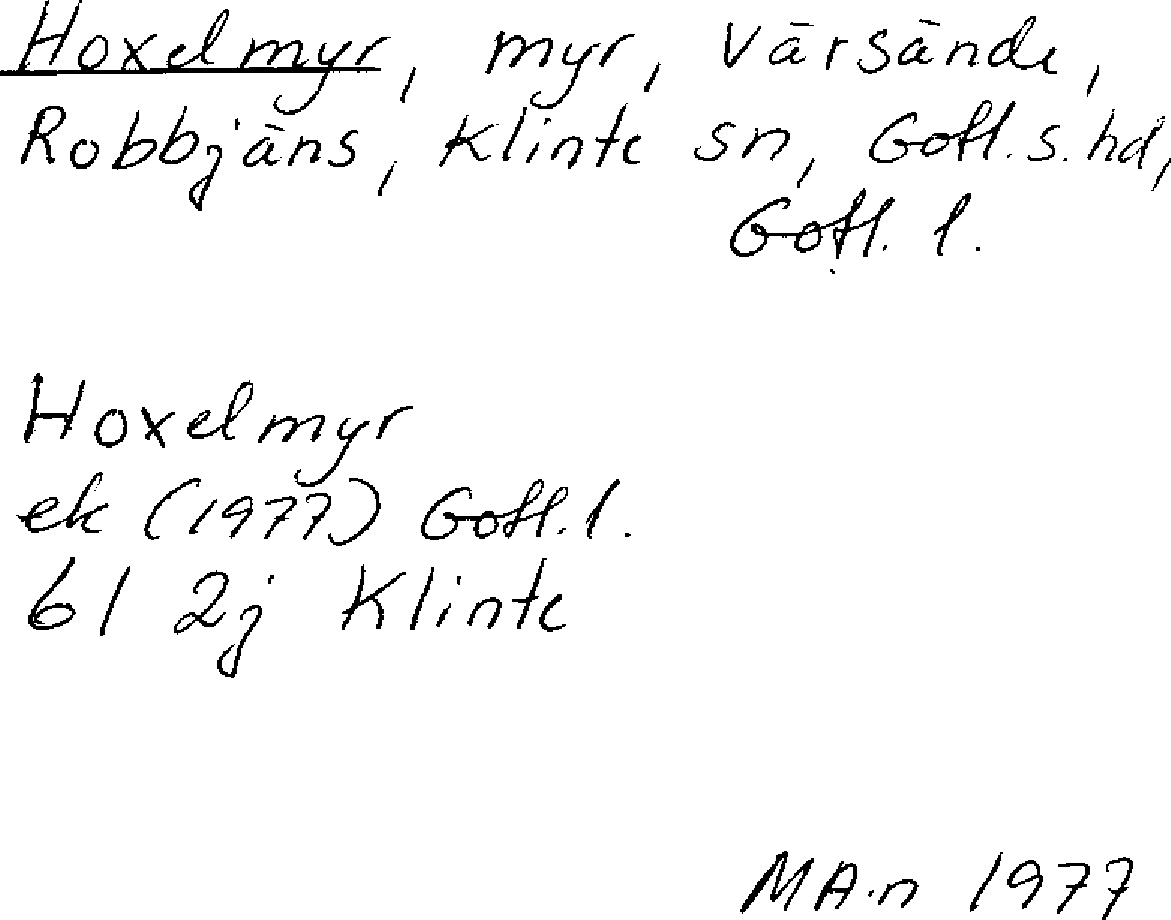 Hoxelmyr, myr, Värsände,
Robbjäns, Klinte sn, Gotl. s. hd,
Gotl. l.
Hoxelmyr
ek (1977) Gotl. l.
6I 2j Klinte
MA-n 1977